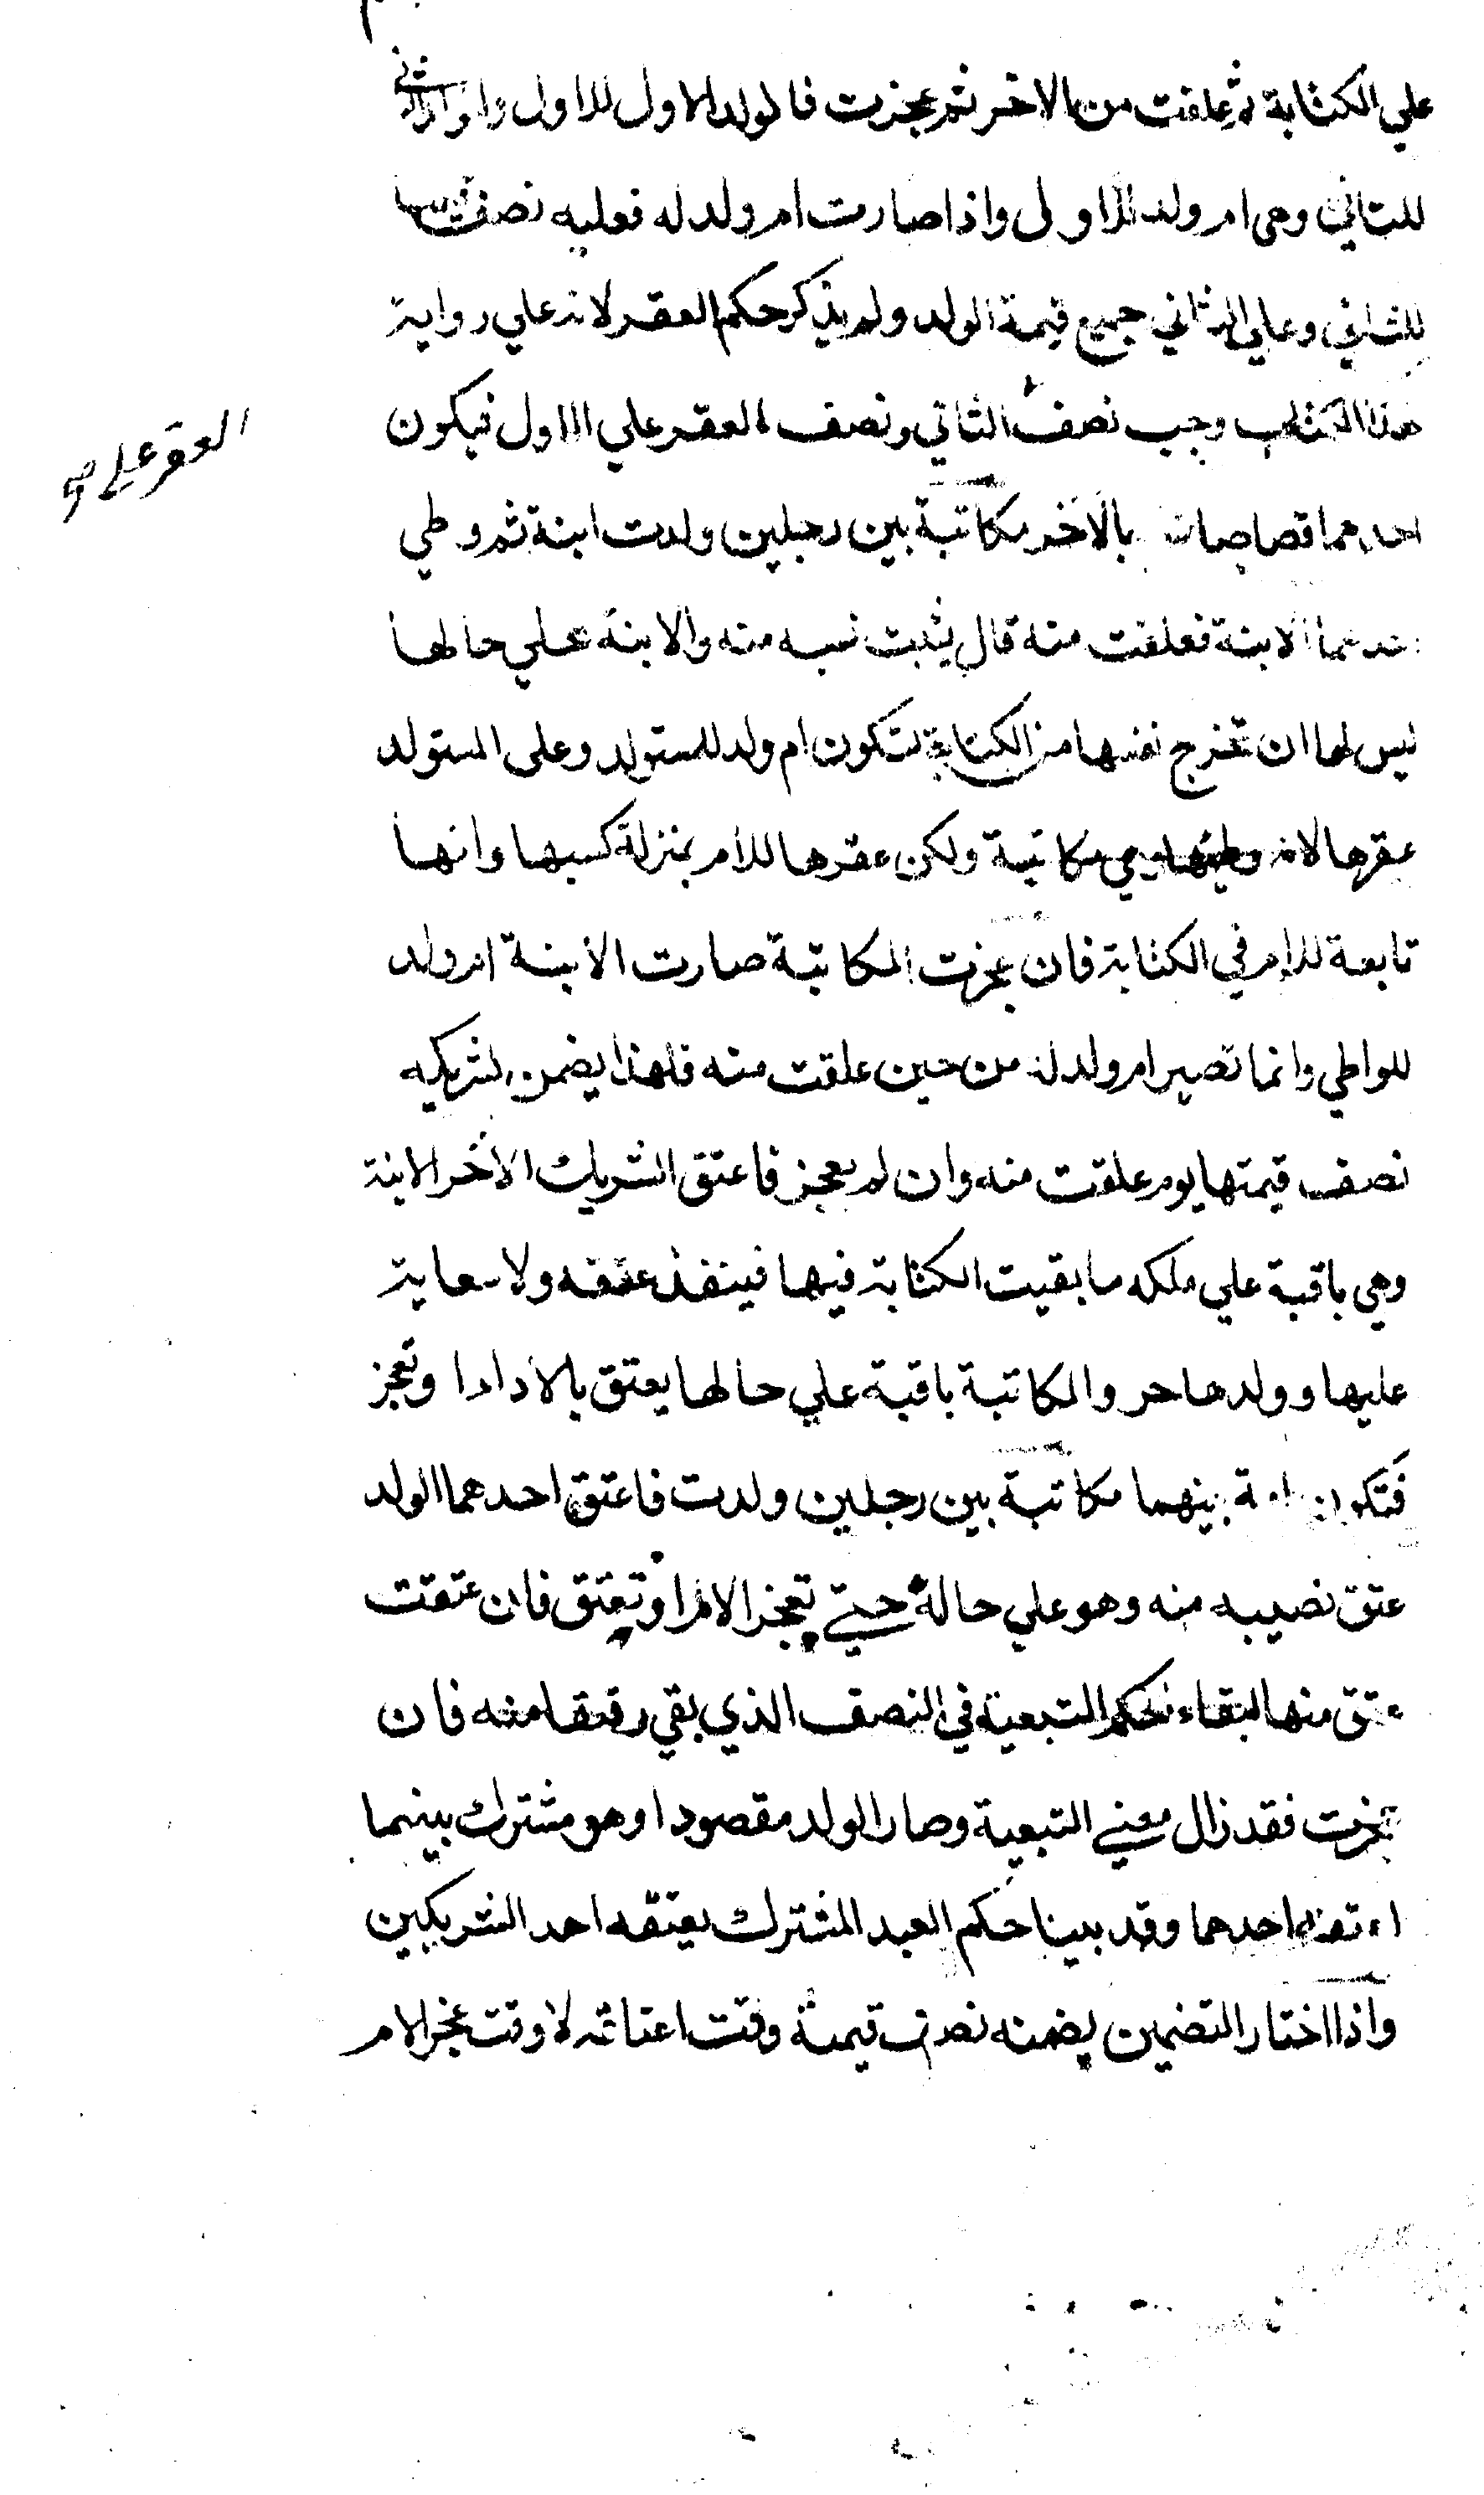 علي الكتابة ثم علقت من الاخر ثم عجزت فالولد الاول للاول والولد الثاني
للثاني وهي ام ولد للاولى واذا صارت ام ولد له فعليه نصف
للثاني وعلي الثاني جميع قيمة الولد ولم يذكر حكم العقر لانه علي رواية
هذا الكتاب وجب نصف الثاني ونصف العقر علي الاول فيكون
العقر على صح
احدهما قصاصا بالاخر مكاتبة بين رجلين ولدت ابنة ثم وطي
احدهما الابنة فعلقت منه قال يثبت نسبه منه والابنة علي حالها
ليس لها ان تخرج نفسها من الكتابة لتكون ام ولد للمستولد وعلى المستولد
عقرها لانه وطيها وهي مكاتبة ولكن عقرها للام بمنزلة كسبها وانها
تابعة للام في الكتابة فان عجزت المكاتبة صارت الابنة ام ولد
للواطي وانما تصير ام ولد له من حين علقت منه فلهذا يضمن لشريكه
نصف قيمتها يوم علقت منه وان لم يعجز فاعتق الشريك الاخر الابنة
وهي باقية علي ملكه ما بقيت الكتابة فيها فينفذ عتقه ولا سعاية
عليها وولدها حر والمكاتبة باقية علي حالها يعتق بالادا او تعجز
فتكون امة بينهما مكاتبة بين رجلين ولدت فاعتق احدهما الولد
عتق نصيبه منه وهو علي حاله حتي تعجز الام او تعتق فان عتقت
عتق منها لبقاء حكم التبعية في النصف الذي بقي رقيقا منه فان
عجزت فقد زال معني التبعية وصار الولد مقصودا وهو مشترك بينهما
اعتقه احدهما وقد بينا حكم العبد المشترك يعتقه احد الشريكين
واذا اختار التضمين يضمنه نصف قيمته وقت اعتاقه لا وقت عجز الام